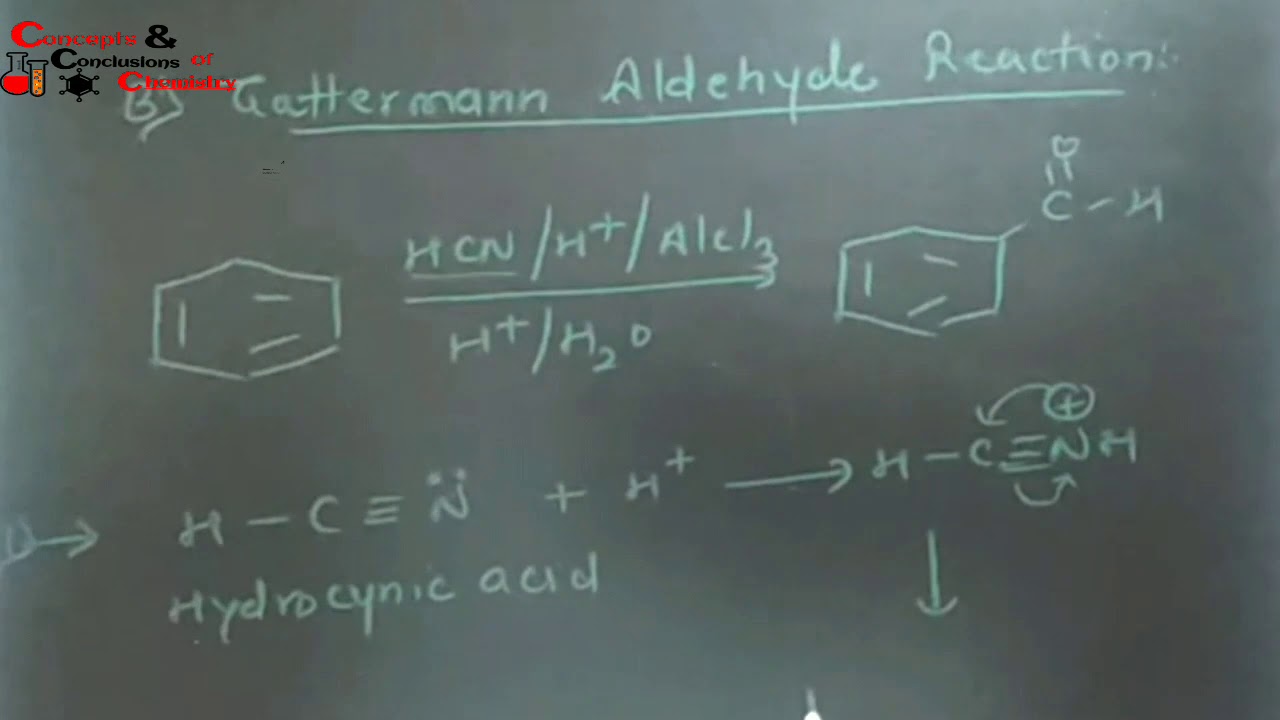 Concepts &
Conclusions of
Chemistry
B) Gattermann Aldehyde Reaction:-
O
C - H
HCN/H+/AlCl3
H+/H2O
H - C ≡ N̈ + H+ ⟶ H - C ≡ NH
+
Hydrocynic acid